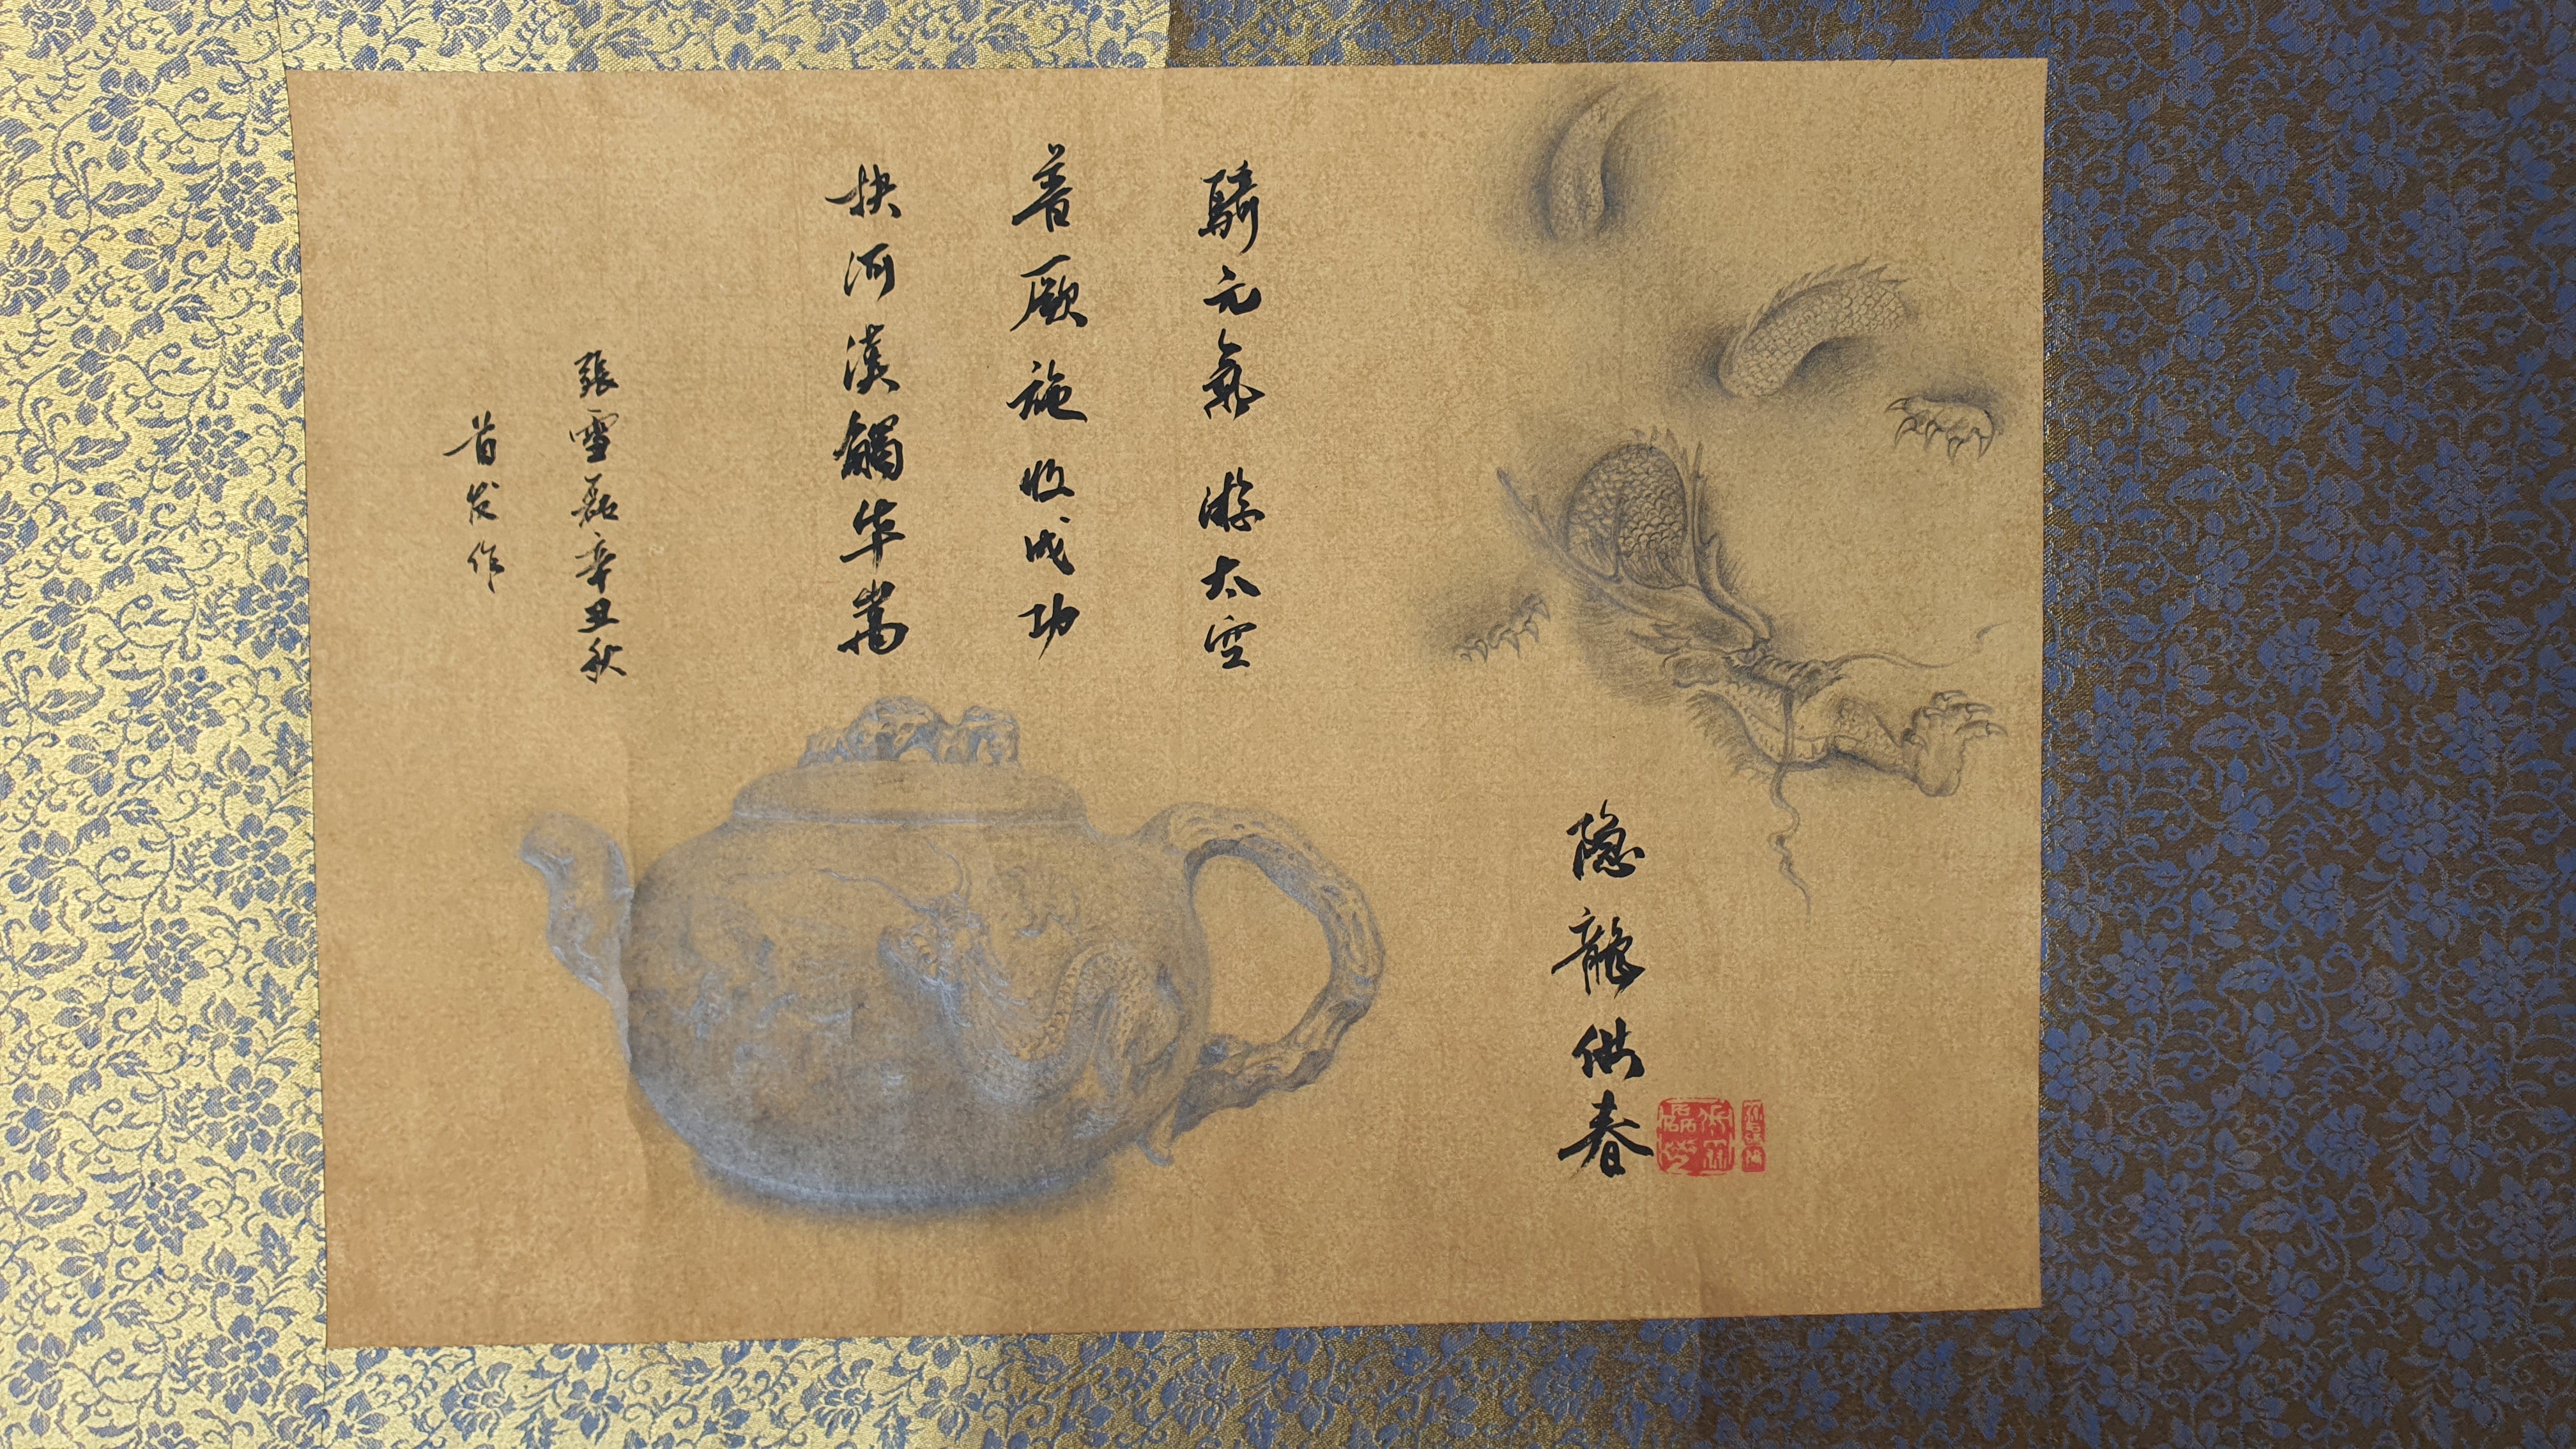 隐龍供春
騎元氣游太空
普厥施收成功
抉河漢觸华嵩
張雪磊辛丑秋
首发作